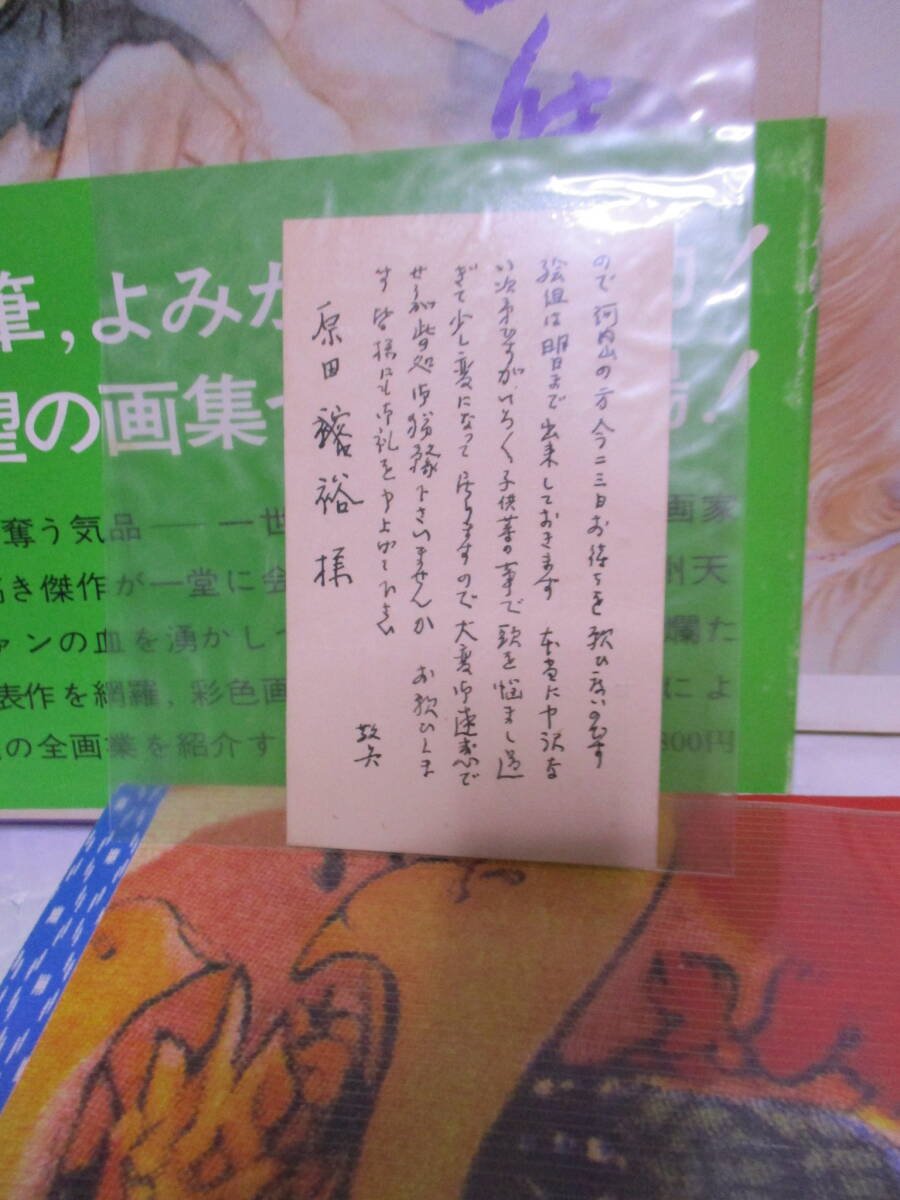 ので 河内山の方 今二三日お待ちを願ひ度いのです
絵組は明日まで出来しておきます 本当に申訳な
い次第ですがいろ〱子供等の事で頭を悩まし過
ぎて少し変になって居りますので大変御遠慮で
せうが此処御猶豫下さいませんか お願ひしま
す 皆様にも御礼を申上げて下さい
敬具
原田 裕様
筆,よみが
!
望の画集
!
奪う気品——一世
画家
高き傑作が一堂に会
州天
ァンの血を湧かし
爛た
表作を網羅,彩色画
によ
の全画業を紹介す
800円